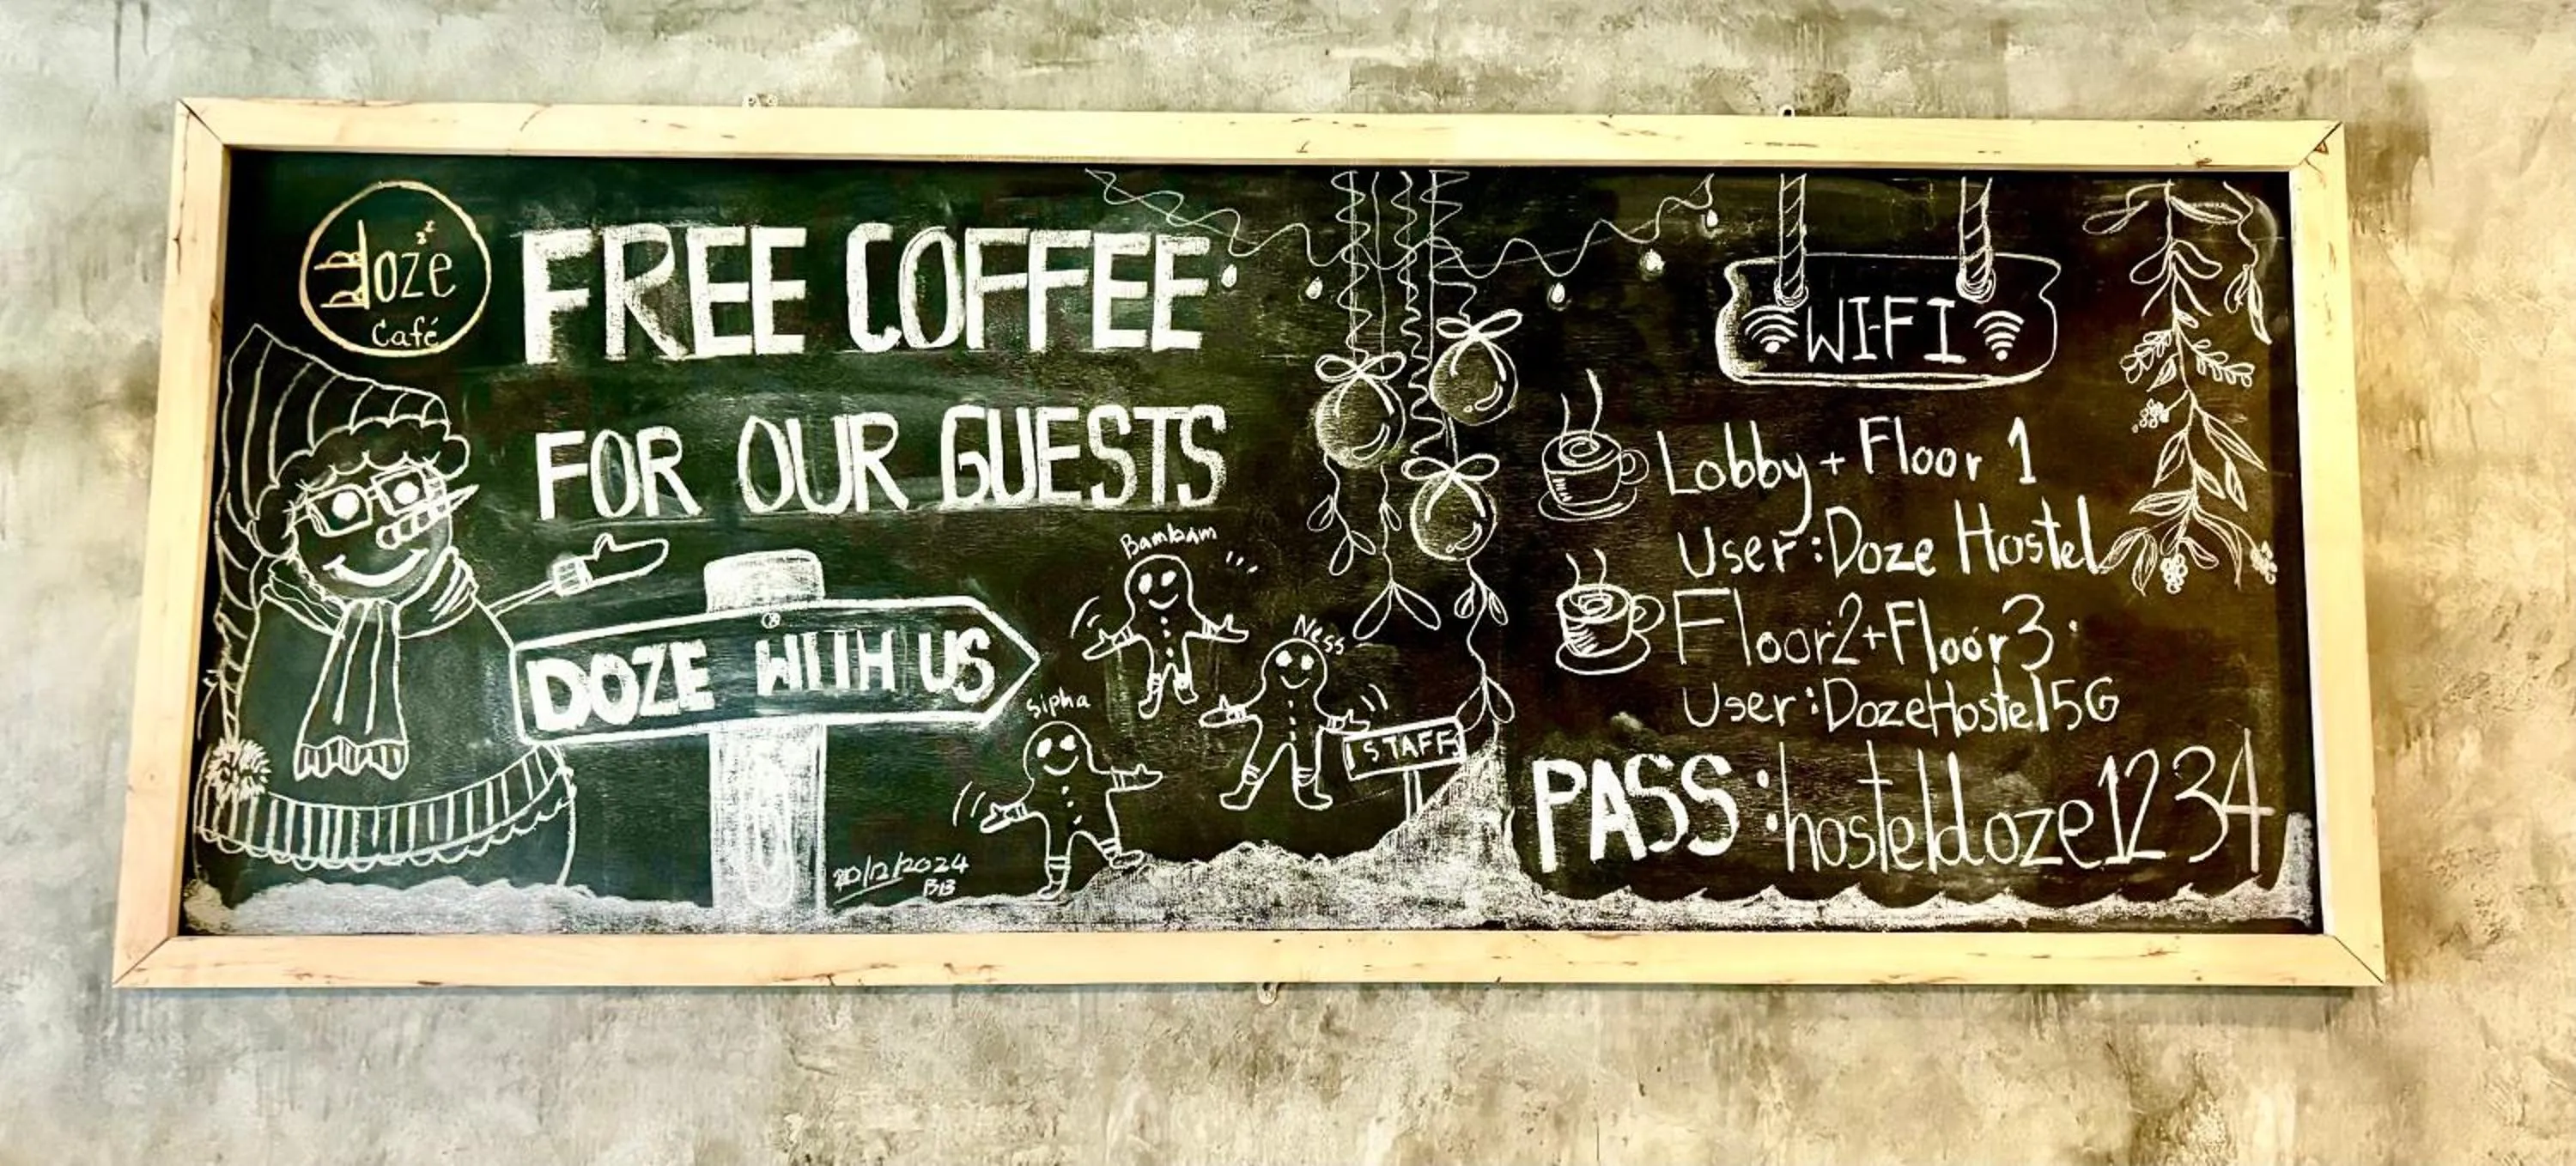 doze
Café
FREE COFFEE
FOR OUR GUESTS
DOZE WITH US
Bambam
Ness
Sipha
STAFF
20/12/2024
BB
WI-FI
Lobby + Floor 1
User : Doze Hostel
Floor2+Floor3
User : DozeHostel5G
PASS : hosteldoze1234